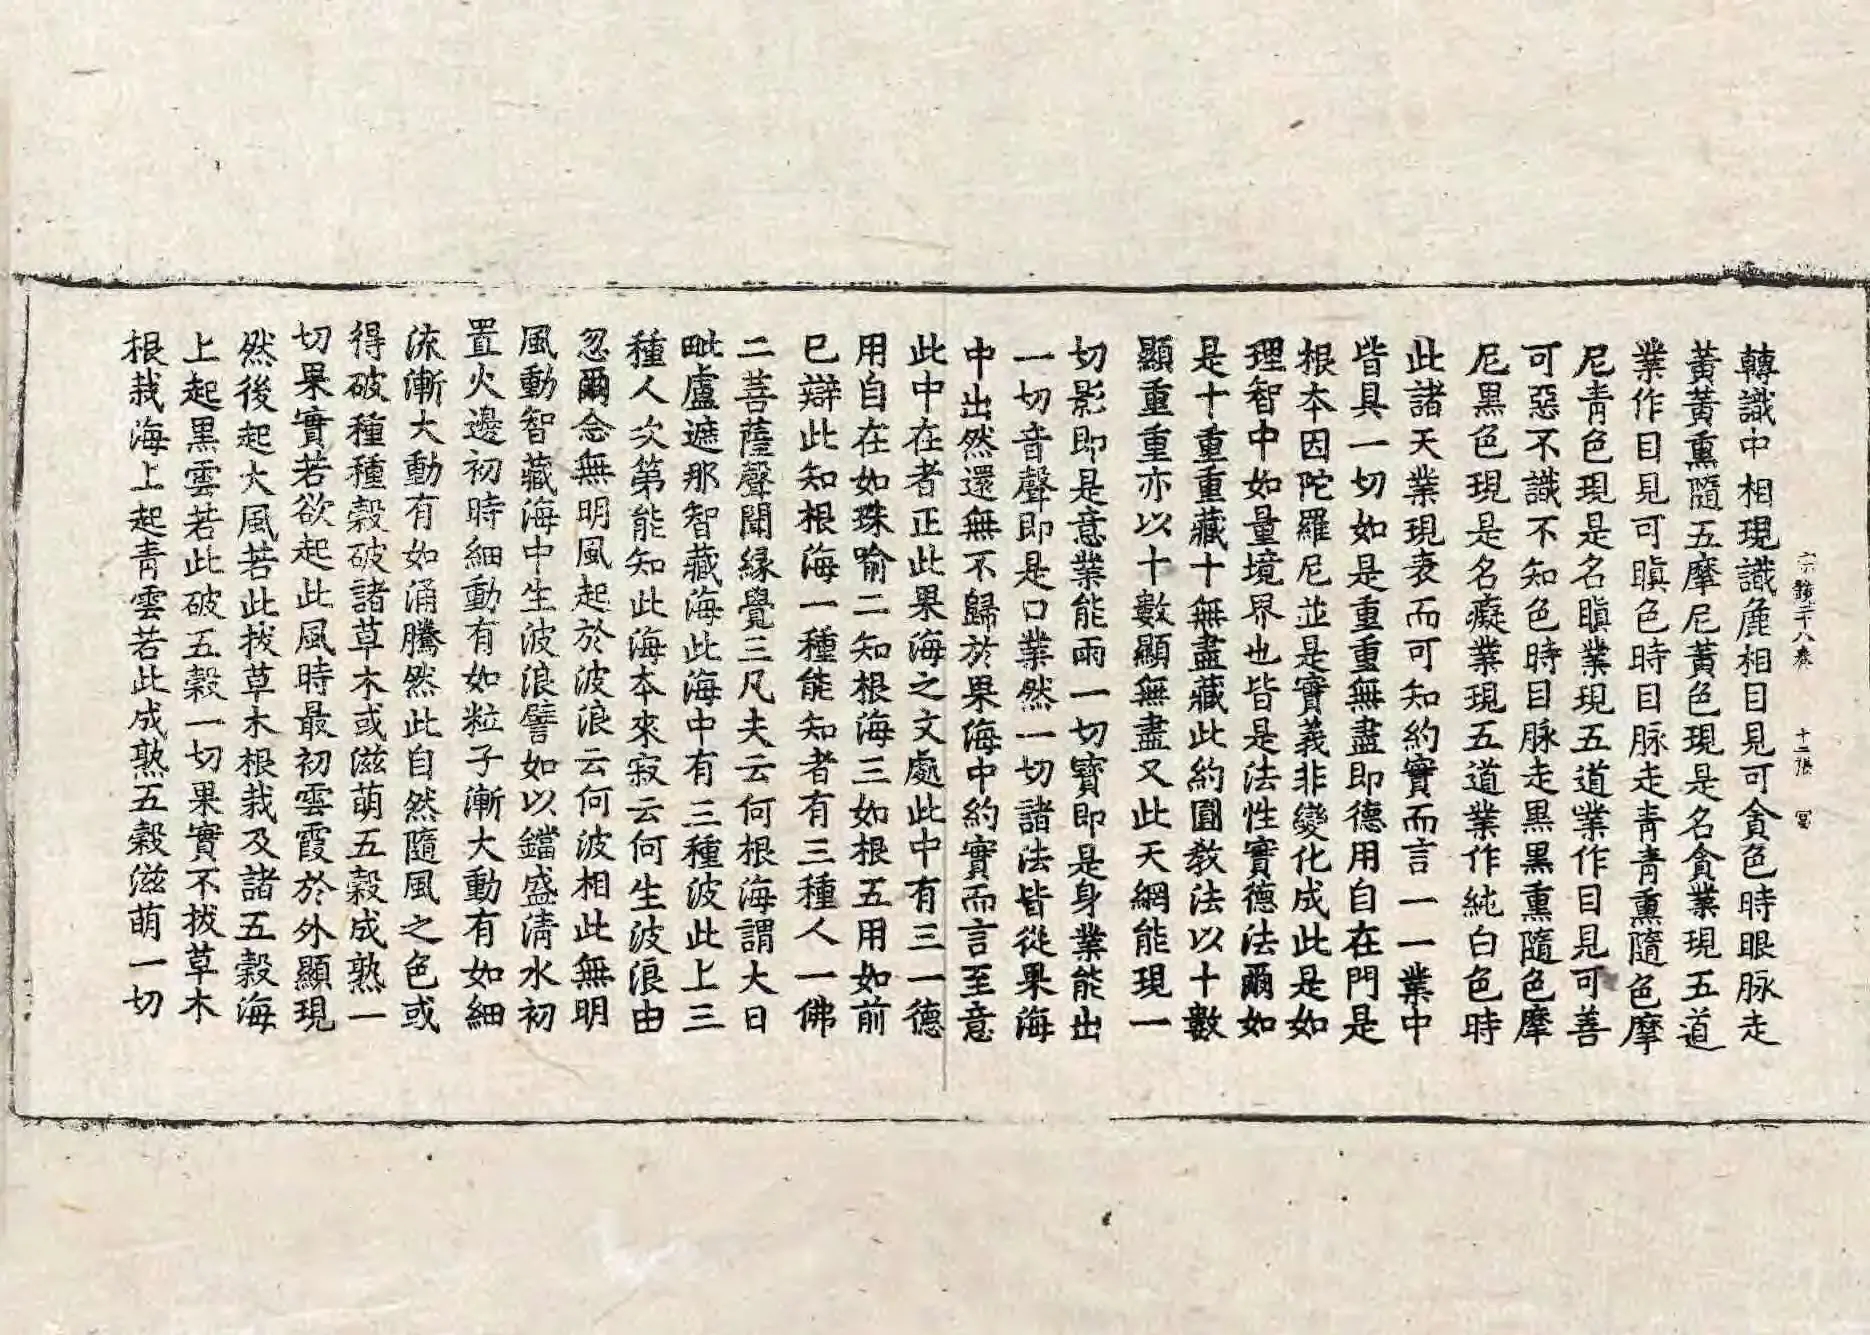 八卷　十二張
轉識中相現識麁相目見可貪色時眼脉走
黃黃熏隨五摩尼黃色現是名貪業現五道
業作目見可瞋色時目脉走青青熏隨色摩
尼青色現是名瞋業現五道業作目見可善
可惡不識不知色時目脉走黑黑熏隨色摩
尼黑色現是名癡業現五道業作純白色時
此諸天業現表而可知約實而言一一業中
皆具一切如是重重無盡即德用自在門是
根本因陀羅尼並是實義非變化成此是如
理智中如量境界也皆是法性實德法爾如
是十重重藏十無盡藏此約圓教法以十數
顯重重亦以十數顯無盡又此天網能現一
切影即是意業能雨一切寶即是身業能出
一切音聲即是口業然一切諸法皆從果海
中出然還無不歸於果海中約實而言至意
此中在者正此果海之文處此中有三一德
用自在如珠喻二知根海三如根五用如前
已辯此知根海一種能知者有三種人一佛
二菩薩聲聞緣覺三凡夫云何根海謂大日
毗盧遮那智藏海此海中有三種波此上三
種人次第能知此海本來寂云何生波浪由
忽爾念無明風起於波浪云何波相此無明
風動智藏海中生波浪譬如以鐺盛清水初
置火邊初時細動有如粒子漸大動有如細
流漸大動有如涌騰然此自然隨風之色或
得破種種穀破諸草木或滋萌五穀成熟一
切果實若欲起此風時最初雲霞於外顯現
然後起大風若此拔草木根栽及諸五穀海
上起黑雲若此破五穀一切果實不拔草木
根栽海上起青雲若此成熟五穀滋萌一切